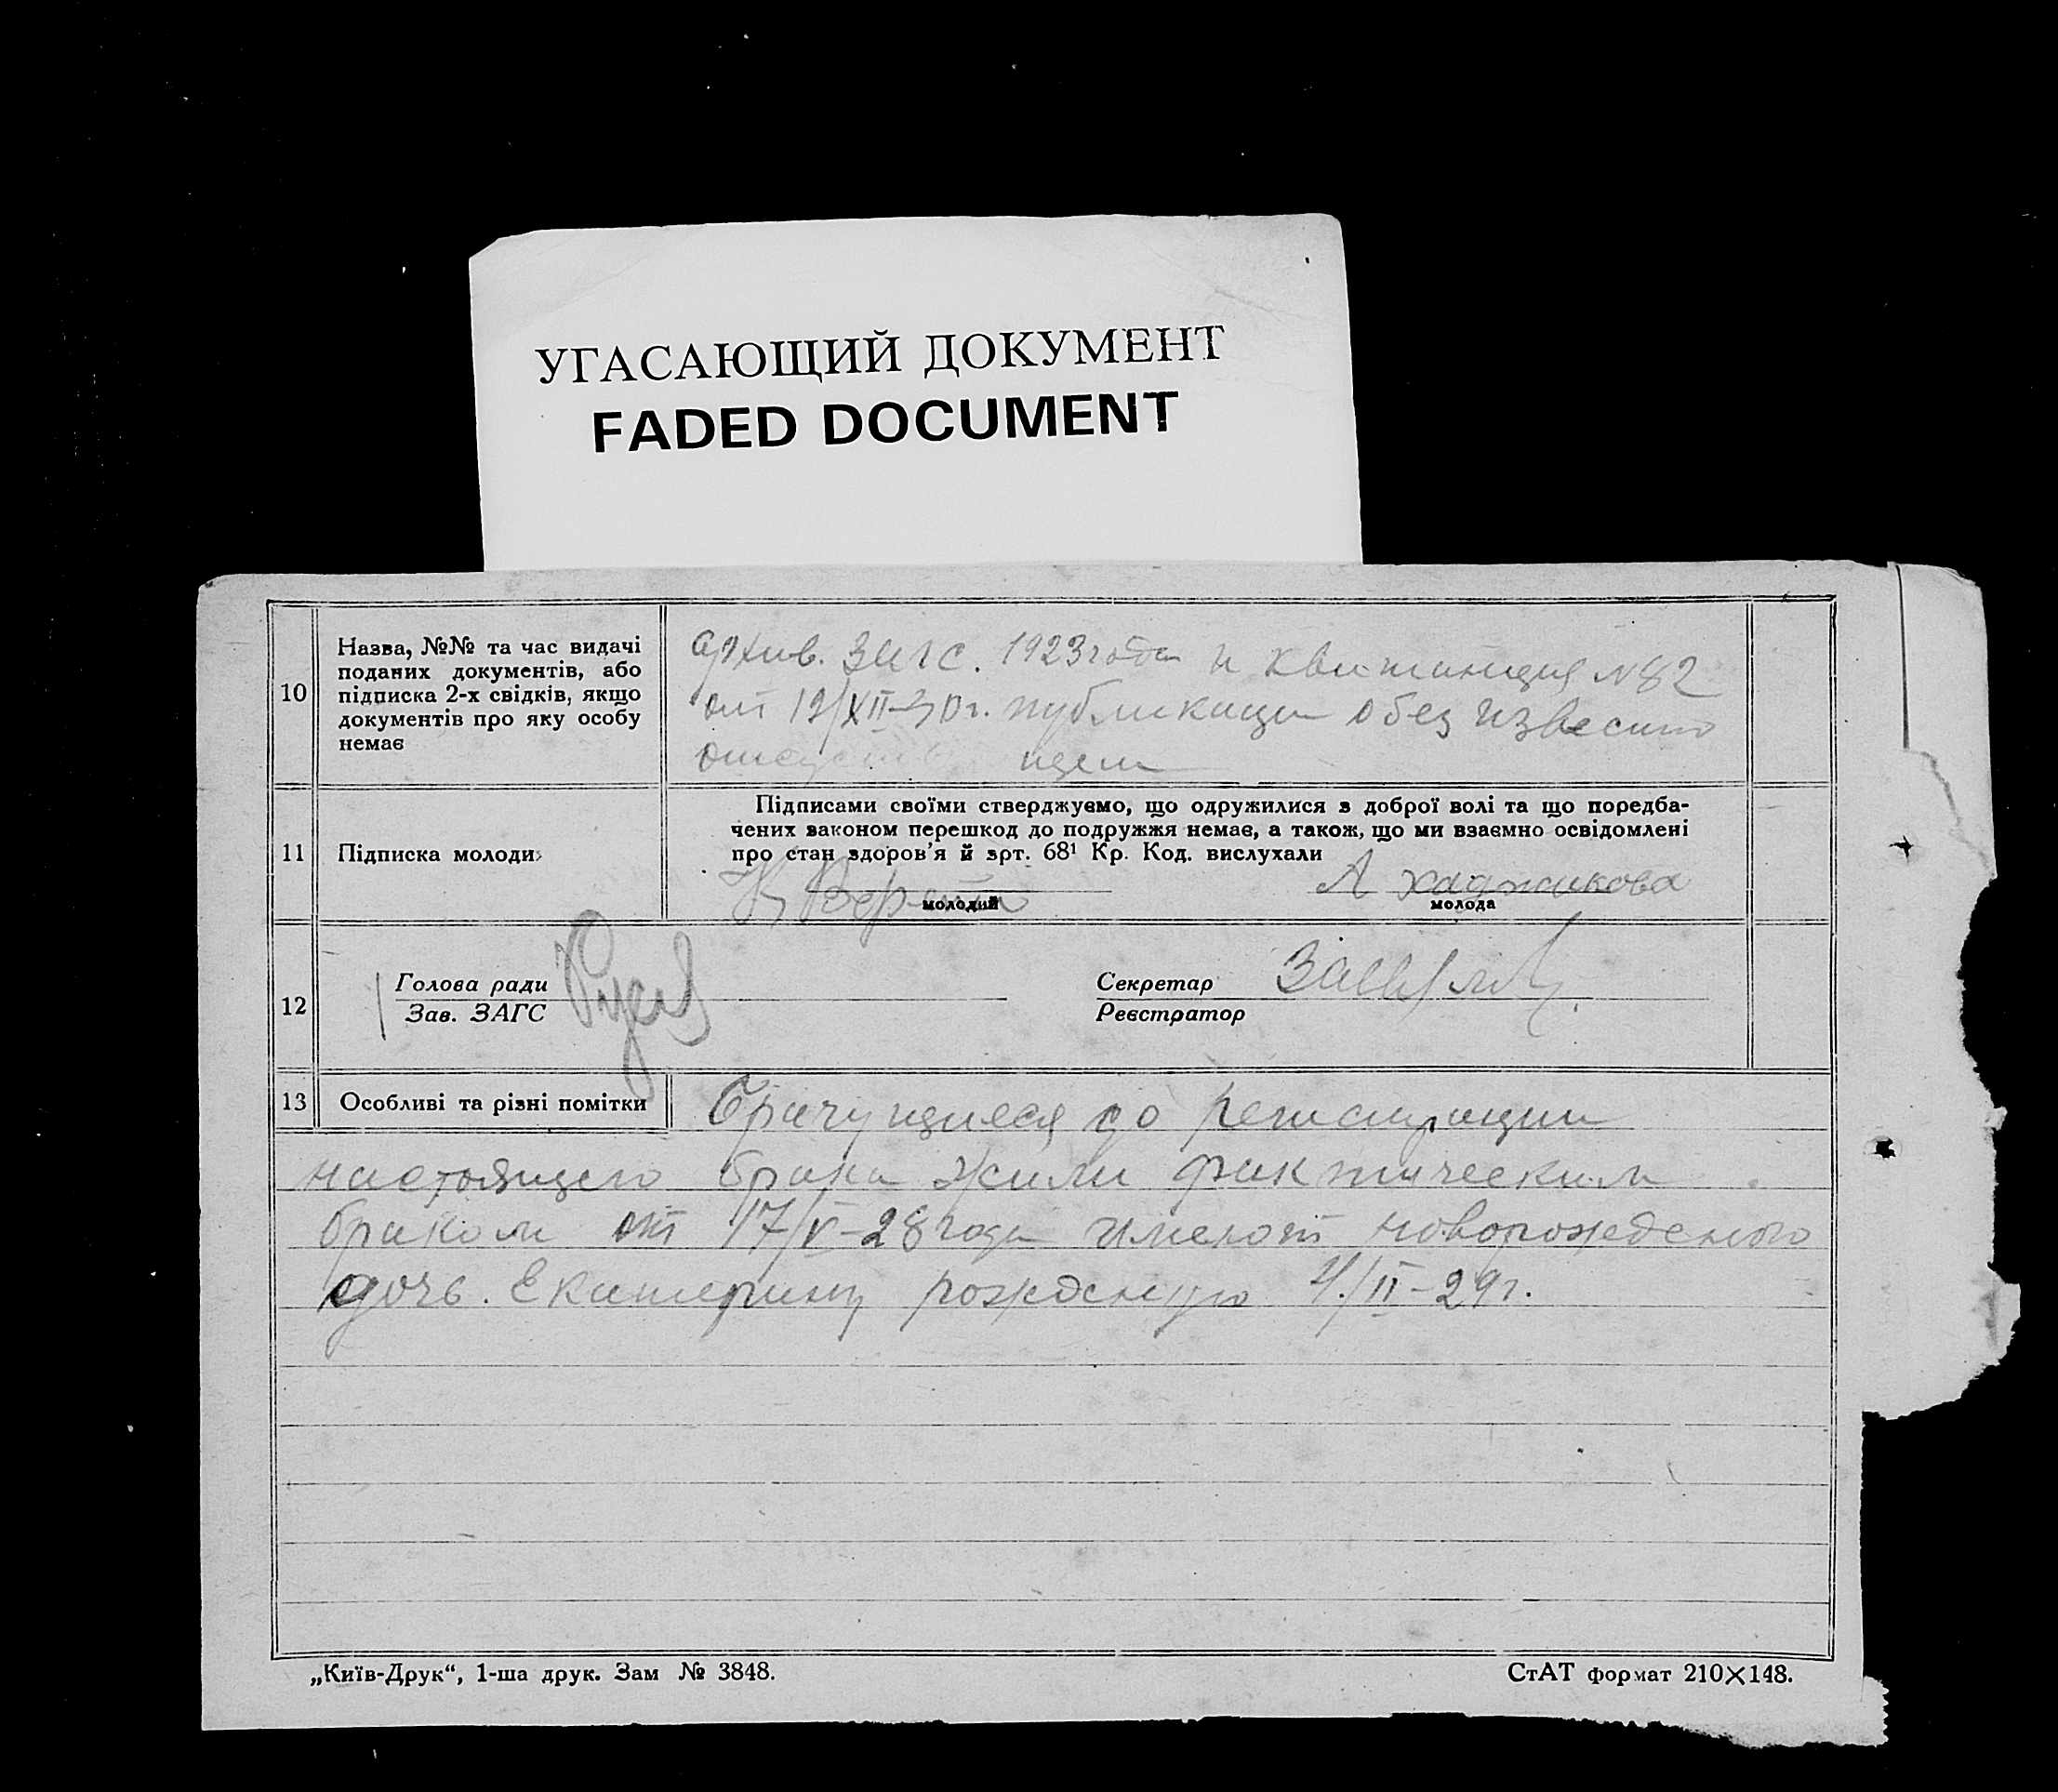 УГАСАЮЩИЙ ДОКУМЕНТ
FADED DOCUMENT
10
Назва, №№ та час видачі
поданих документів, або
підписка 2-х свідків, якщо
документів про яку особу
немає
архив. загс. 1923 года и квитанция N 82
от 19/XII-30 г. публикации о без известно
11
Підписка молоди
Підписами своїми стверджуємо, що одружилися з доброї волі та що поредба-
чених законом перешкод до подружжя немає, а також, що ми взаємно освідомлені
про стан здоров'я й зрт. 68¹ Кр. Код. вислухали
А хаджикова
молодий
молода
12
Голова ради
Зав. ЗАГС
Секретар
Реєстратор
13
Особливі та різні помітки
Брачущиеся до регистрации
настоящего брака жили фактическим
браком от 17/V-28 года имеют новорожденого
дочь. Екатерину рожденую 4/II-29 г.
„Київ-Друк“, 1-ша друк. Зам № 3848.
СтАТ формат 210×148.